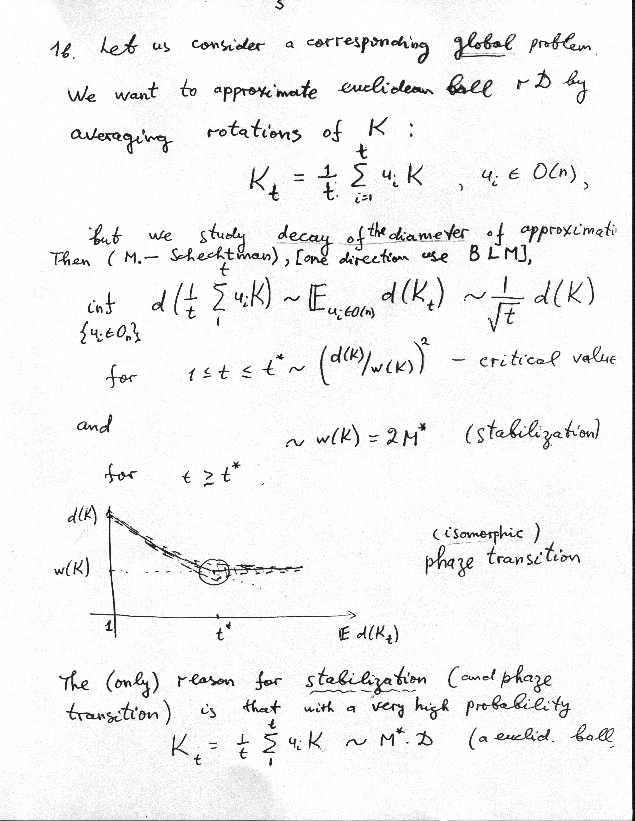 5
1b. Let us consider a corresponding global problem.
We want to approximate euclidean ball rD by
averaging rotations of K :
K_t = 1/t ∑_{i=1}^{t} u_i K , u_i ∈ O(n),
but we study decay of the diameter of approximati
Then (M.- Schechtman), [one direction use BLM],
inf_{{u_i∈O_n}} d(1/t ∑_1^t u_i K) ~ 𝔼_{u_i∈O(n)} d(K_t) ~ 1/√t d(K)
for 1 ≤ t ≤ t* ~ (d(K)/w(K))^2 - critical value
and ~ w(K) = 2M* (stabilization)
for t ≥ t*.
d(K)
(isomorphic)
w(K) phaze transition
1 t* 𝔼 d(K_t)
The (only) reason for stabilization (and phaze
transition) is that with a very high probability
K_t = 1/t ∑_1^t u_i K ~ M*·D (a euclid. ball